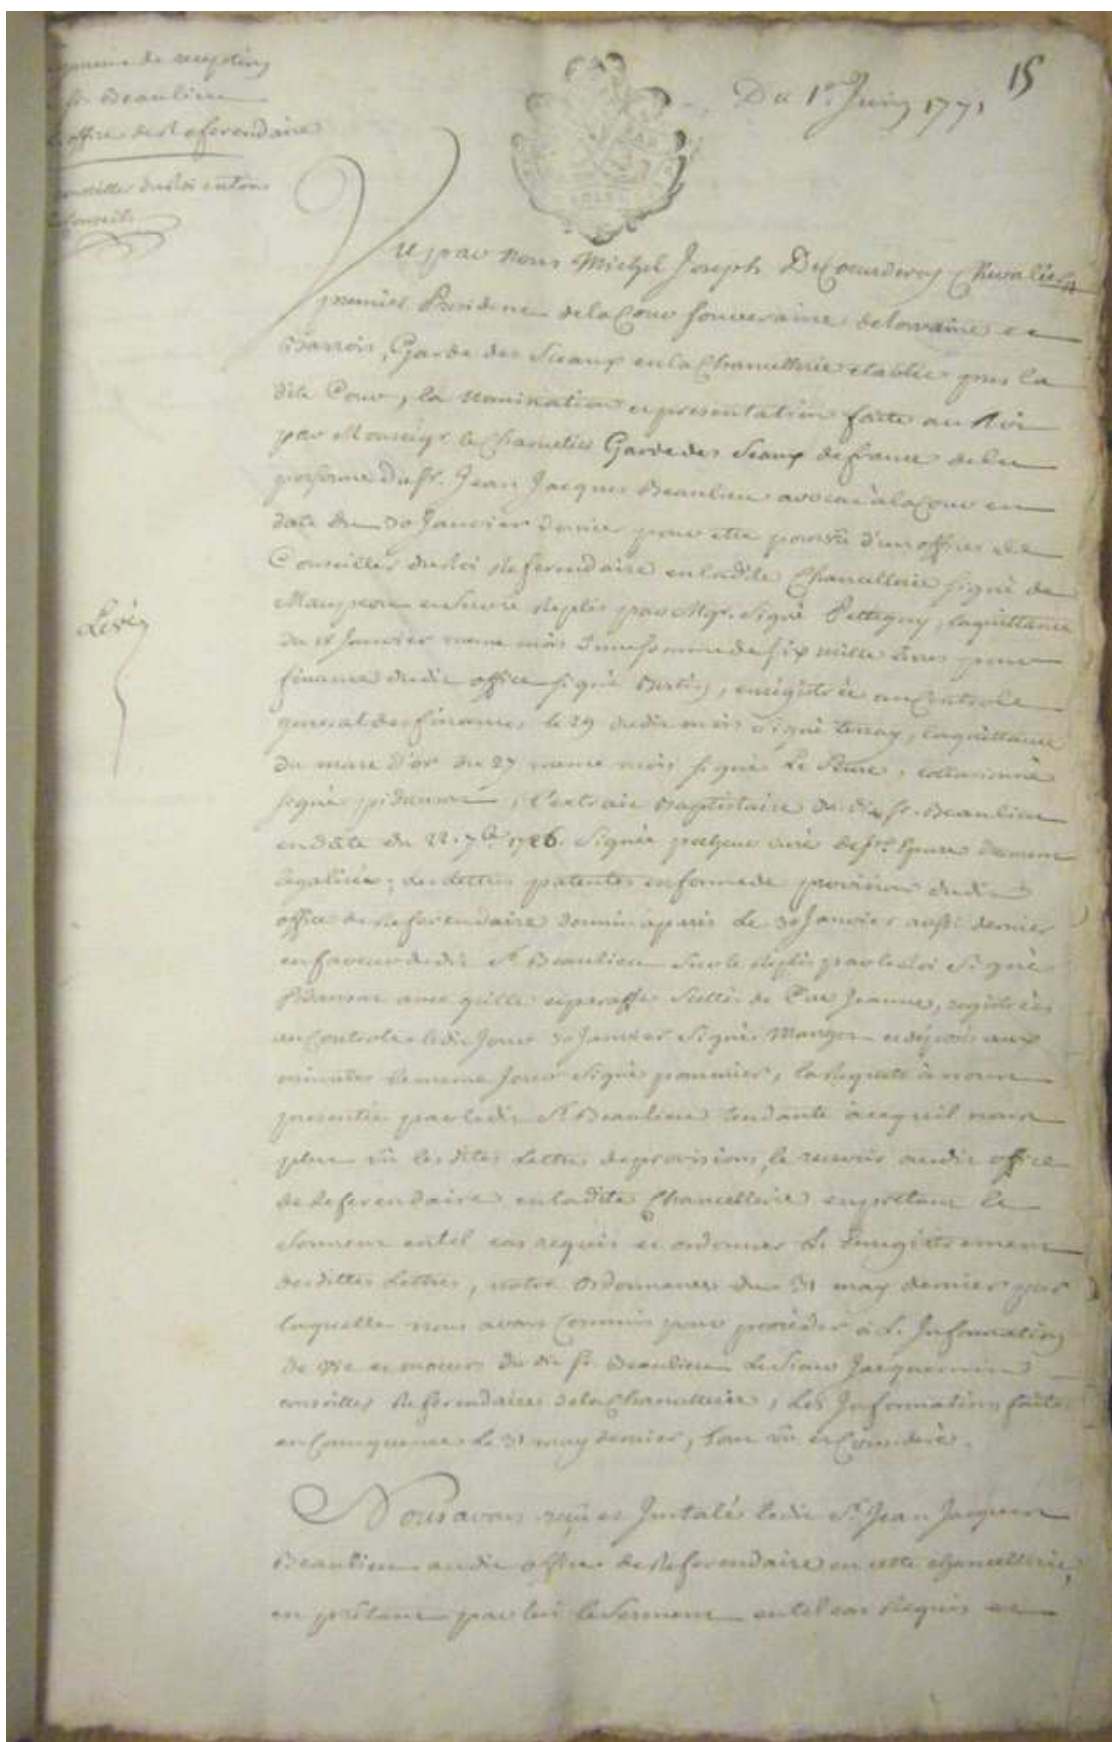 de reception
Sr. Beaulieu
office de Referendaire
Conseiller du Roi en tous
Conseils
15
Du 1er. Juin 1771
Levée
Vu par Nous Michel Joseph De Coeurderoy Chevalier
premier President de la Cour souveraine de Lorraine et
Barrois, Garde des Sceaux en la Chancellerie etablie pres la
dite Cour, la Nomination et presentation faite au Roi
par Monseigr. le Chancelier Garde des Sceaux de france de la
personne du Sr. Jean Jacques Beaulieu avocat à la Cour en
date du 30 Janvier dernier pour etre pourvu d'un office de
Conseiller du Roi Referendaire en ladite Chancellerie signé de
Maupeou ensuivie Replis par Mgr. signé Pettigny, la quittance
du Janvier meme mois d'une somme de six mille livres pour
finance dudit office signé Bertin, enrégistrée au Controle
general des finances le 29 dudit mois signé Terray, la quittance
du marc d'or du 27 meme mois signé Le Seure, collationné
signé pidansat, l'extrait Baptistaire du dit Sr. Beaulieu
en date du 22. 7bre 1726. Signée curé de St. Epvre duement
legalisée; les Lettres patentes en forme de provision dudit
office de Referendaire donné a paris le 30 Janvier aussi dernier
en faveur dudit Sr. Beaulieu sur le Replis par le Roi Signé
Pidansat avec grille et paraffe Scellé de Cire Jaune, registrées
au Controle ledit Jour 30 Janvier Signés et déposés aux
minutes le meme Jour signé pommier, la Requete à nous
presentée par ledit Sr. Beaulieu tendante à ce qu'il nous
plut vû lesdites Lettres de provisions, le recevoir audit office
de Referendaire en ladite Chancellerie en prétant le
Serment en tel cas requis et ordonner L'Enregistrement
desdittes Lettres, notre Ordonnance du 31 may dernier par
laquelle nous avons Commis pour procéder à L'Information
de vie et moeurs du dit Sr. Beaulieu Le Sieur Jacquemin
conseiller Referendaire de la Chancellerie, Les Informations faites
en Consequence le 31 may dernier, tout vû et Considéré.
Nous avons reçu et Installé ledit Sr. Jean Jacques
Beaulieu audit office de Referendaire en cette chancellerie,
en prétant par lui le Serment en tel cas Requis et